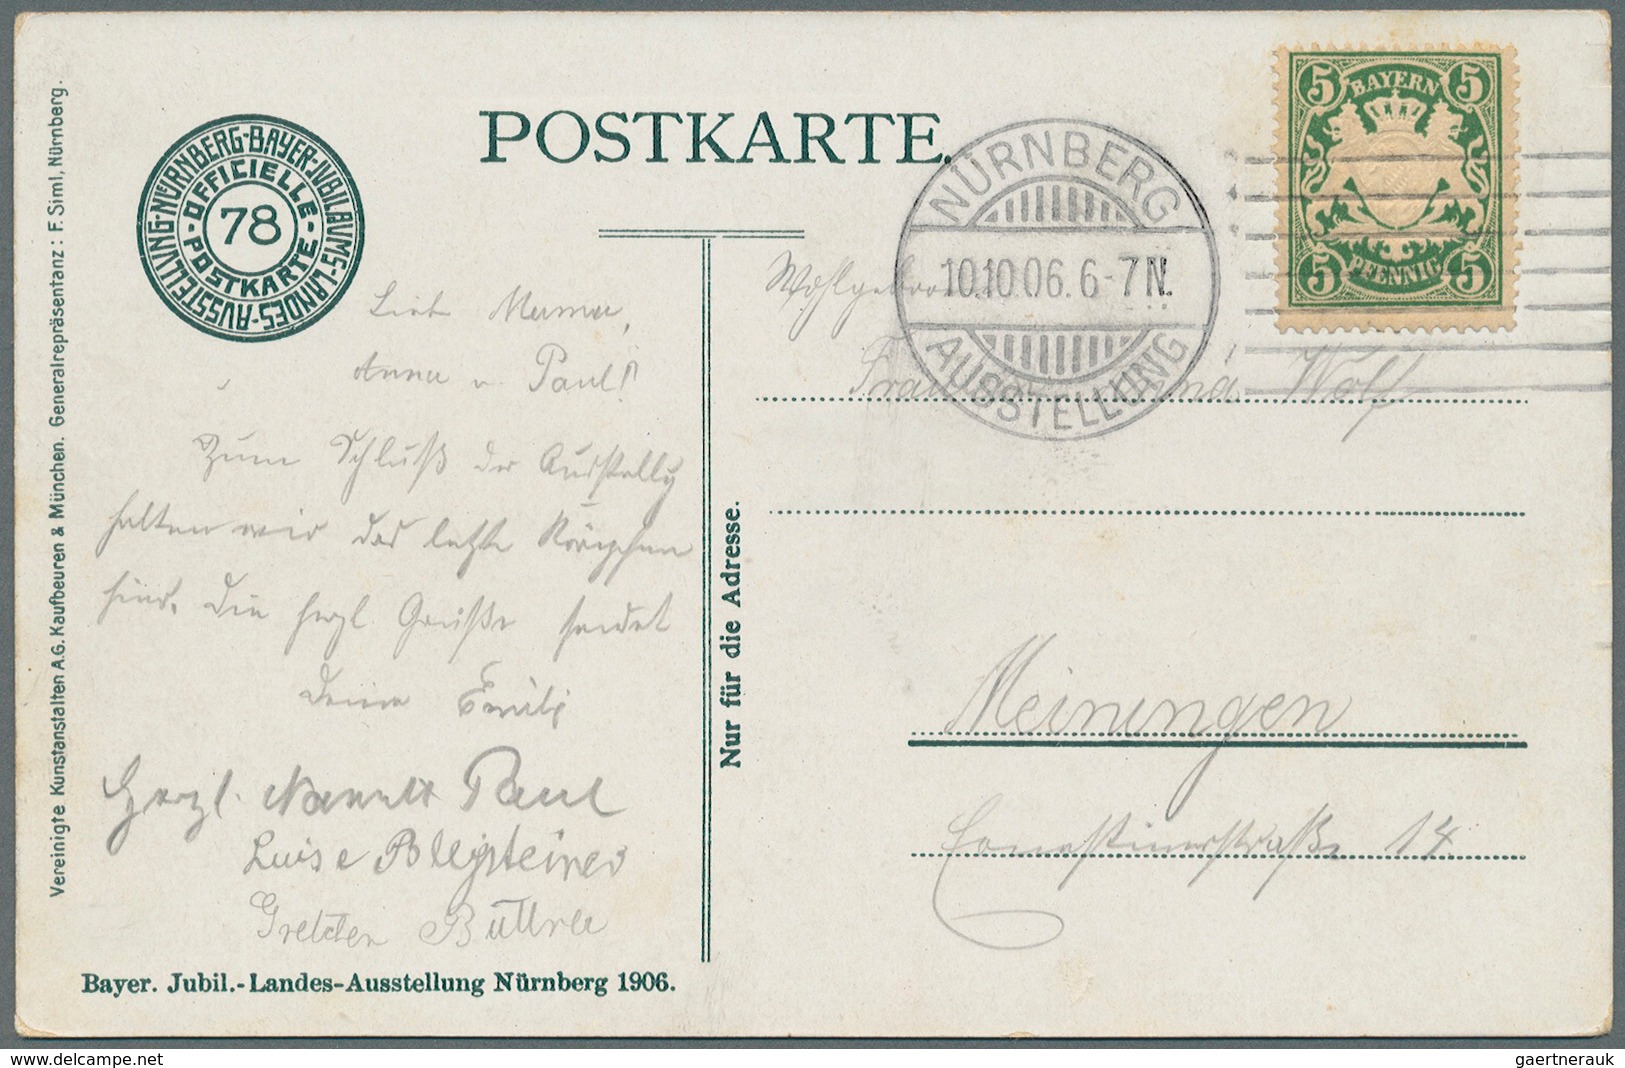 POSTKARTE.
NÜRNBERG-BAYER-JUBILÄUMS-LANDES-AUSSTELLUNG
OFFICIELLE - POSTKARTE
78
Vereinigte Kunstanstalten A.G. Kaufbeuren & München. Generalrepräsentanz: F. Siml, Nürnberg.
NÜRNBERG
10.10.06. 6-7 N.
AUSSTELLUNG
5 BAYERN 5
5 PFENNIG 5
Liebe Mama,
Anna u. Paul!
Zum Schluß der Ausstellg
halten wir das letzte
hier. Die herzl. Grüße sendet
Deine Emili
Herzl. Paul
Luise Bleisteiner
Gretchen Büttner
Bayer. Jubil.-Landes-Ausstellung Nürnberg 1906.
Nur für die Adresse.
Wohlgeboren
Frau Wolf
Meiningen
14
gaertnerauk